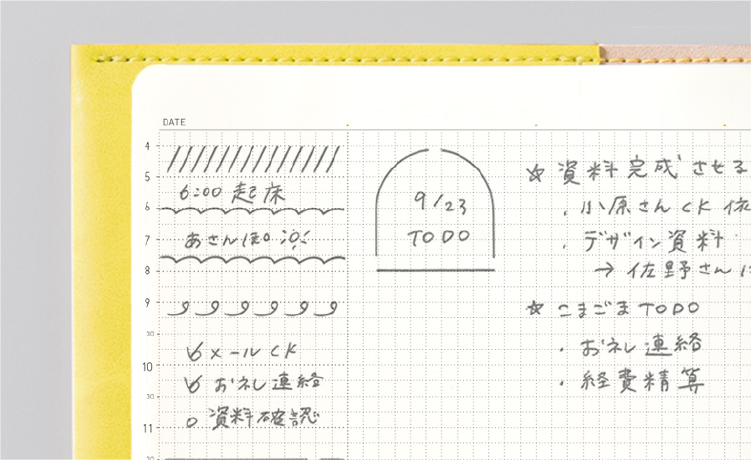 DATE
4
5
6:00 起床
6
あさんぽ
7
8
9
30
メールCK
10
お礼連絡
30
資料確認
11
30
9/23
TODO
☆ 資料完成させる
・小原さんCK 依
・デザイン資料
→ 佐野さんに
☆ こまごまTODO
・お礼連絡
・経費精算